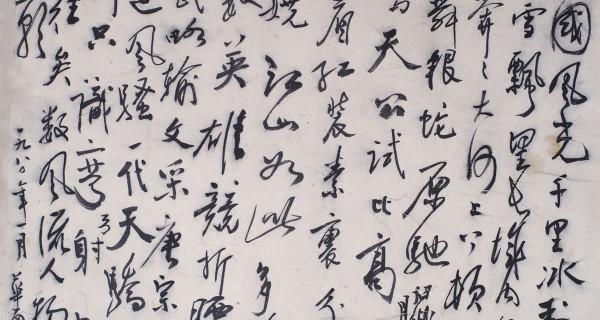 國風光千里冰封
雪飄望长城内
莽〻大河上下頓
舞銀蛇原馳
天公試比高
红裝素裹分
嬈江山如此多
數英雄競折腰
武略輸文采唐宗
風騷一代天驕
只識彎弓射
往矣数風流人物
一九八〇年一月